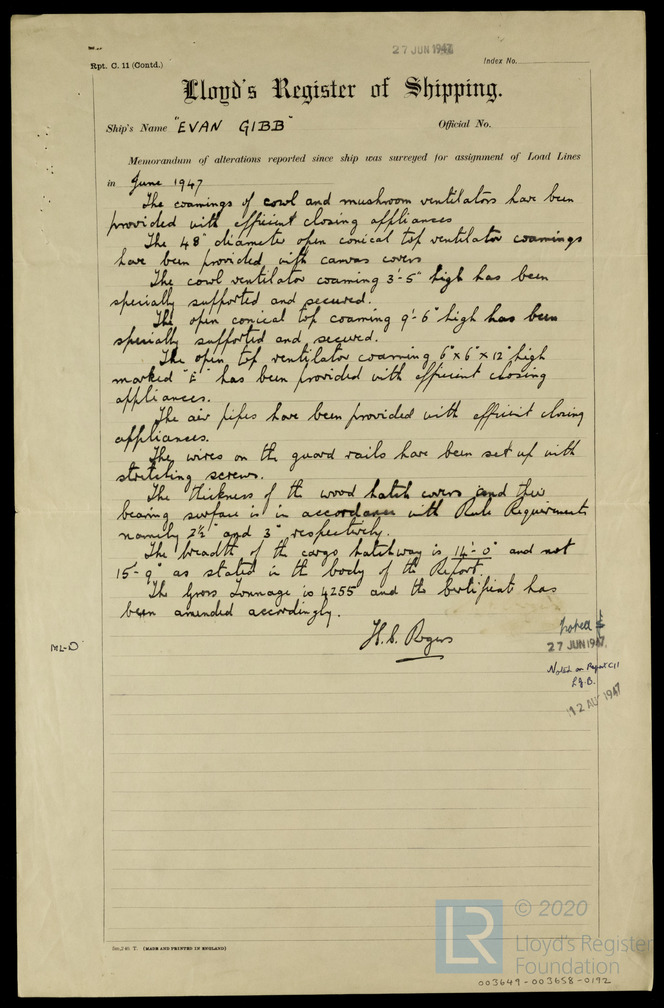 27 JUN 1947
Rpt. C. 11 (Contd.)
Index No.
Lloyd's Register of Shipping.
Ship's Name "EVAN GIBB"
Official No.
Memorandum of alterations reported since ship was surveyed for assignment of Load Lines
in June 1947
The coamings of cowl and mushroom ventilators have been
provided with efficient closing appliances
The 48" diameter open conical top ventilator coamings
have been provided with canvas covers
The cowl ventilator coaming 3'-5" high has been
specially supported and secured.
The open conical top coaming 9'-6" high has been
specially supported and secured.
The open top ventilator coaming 6" x 6" x 12" high
marked "E" has been provided with efficient closing
appliances.
The air pipes have been provided with efficient closing
appliances.
The wires on the guard rails have been set up with
stretching screws.
The thickness of the wood hatch covers and their
bearing surface is in accordance with Rule Requirements
namely 2½" and 3" respectively.
The breadth of the cargo hatchway is 14'-0" and not
15'-9" as stated in the body of the Report.
The Gross Tonnage is 4255 and the Certificate has
been amended accordingly.
H.S. Rogers
ML-D
Noted
27 JUN 1947
Noted on Report C11
12 AUG 1947
(MADE AND PRINTED IN ENGLAND)
LR
© 2020
Lloyd's Register
Foundation
003649-003658-0192